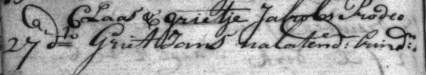 Claas & Grietje Jacobs Kodeo
27 dto Griet Jans nalatend: kind: